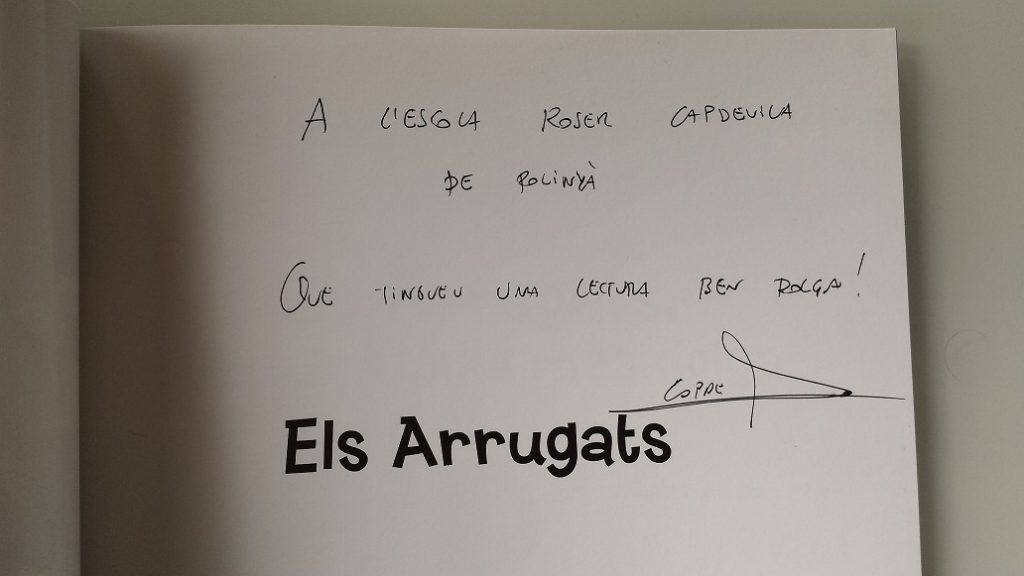 A L'ESCOLA ROSER CAPDEVILA
DE POLINYÀ
QUE TINGUEU UNA LECTURA BEN !
Els Arrugats